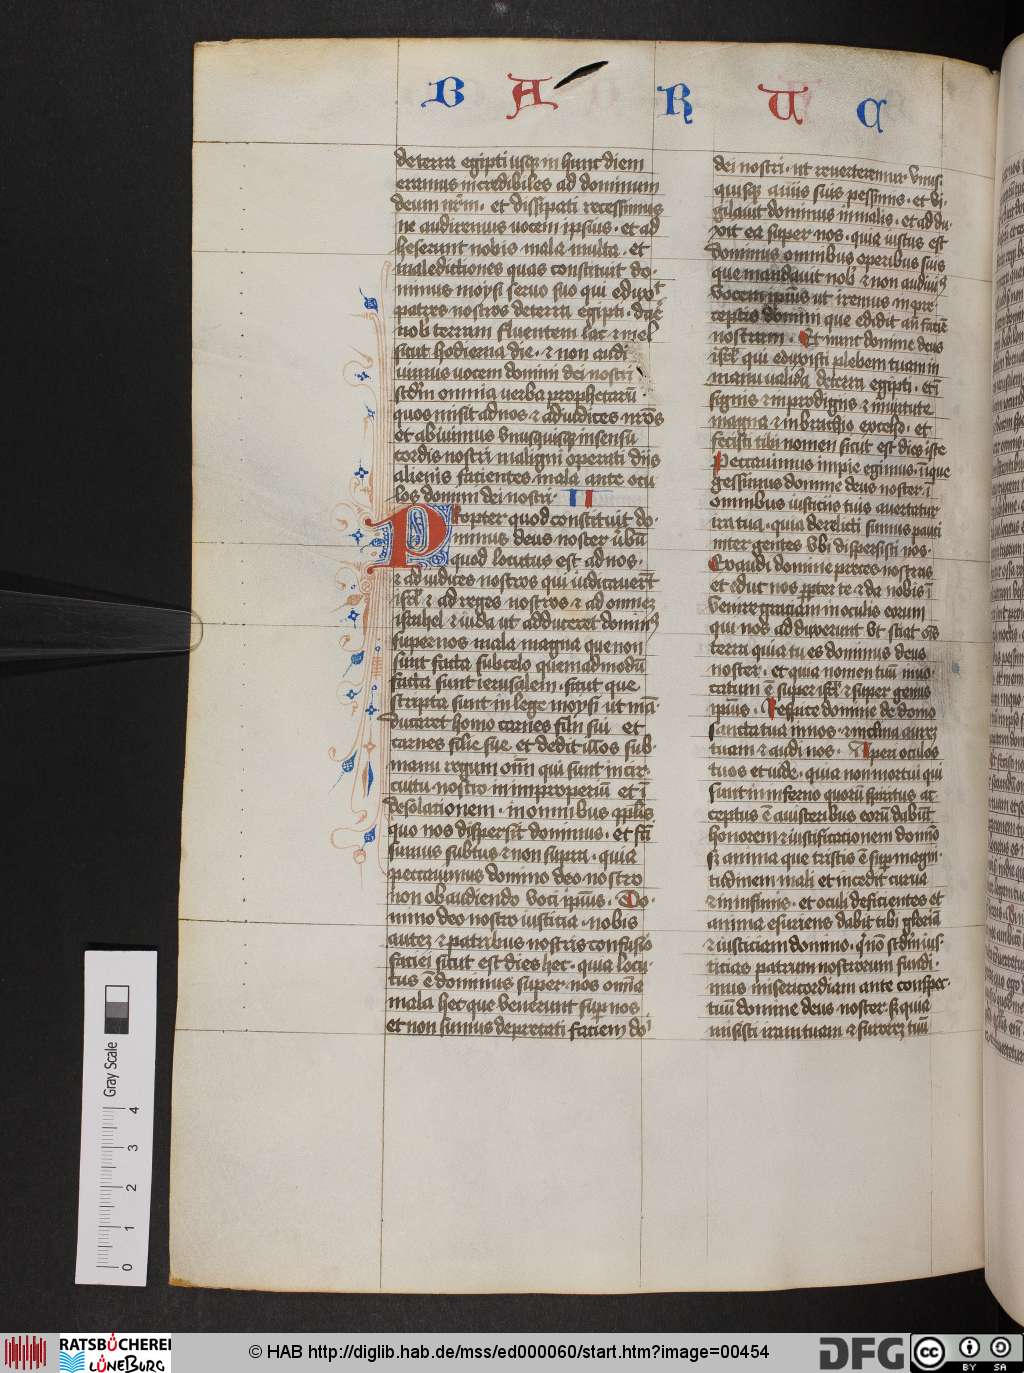 B A R U C
de terra egipti usq; in hunc diem
eramus incredibiles ad dominum
deum nr̄m · et dissipati recessimus
ne audiremus uocem ipsius · et ad
heserunt nobis mala multa · et
maledictiones quas constituit do·
minus moysi seruo suo qui eduxͭ
patres nostros de terra egipti · dar̄
nob̄ terram fluentem lac ⁊ mel
sicut hodierna die · ⁊ non audi
uimus uocem domini dei nostri
scd̄m omnia uerba prophetarū ·
quos misit ad nos ⁊ ad iudices nrōs
et abiuimus vnusquisq; in sensū
cordis nostri maligni operati diis
alienis facientes mala ante ocu
los domini dei nostri · II
Propter quod constituit do·
minus deus noster ūbū
quod locutus est ad nos ·
⁊ ad iudices nostros qui iudicauer̄t
isrl̄ ⁊ ad reges nostros ⁊ ad omnez
israhel ⁊ iuda ut adduceret dominꝰ
super nos mala magna que non
sunt facta sub celo quemadmodū
facta sunt ierusalem · sicut que
scripta sunt in lege moysi ut mā·
ducaret homo carnes filii sui et
carnes filie sue et dedit ūos sub·
manu regum om̄i qui sunt in cir·
cuitu nostro in improperiū et ī
desolationem · in omnibus pp̄lis
quo nos dispersit dominus · et fc̄i
sumus subtus ⁊ non supra · quia
peccauimus domino deo nostro
non obaudiendo voci ipsius · Do·
mino deo nostro iusticia · nobis
autez ⁊ patribus nostris confusio
faciei sicut est dies hec · quia locu·
tus ē dominus super nos omīa
mala hec que venerunt suꝑ nos
et non sumus deprecati faciem do͛
dei nostri · ut reuerteremur vnus·
quisq; a uiis suis pessimis · et vi·
gilauit dominus in malis · et ad du·
xit ea super nos · quia iustus est
dominus omnibus operibus suis
que mandauit nob̄ ⁊ non audiuīꝰ
vocem ipsius ut iremus in pre·
ceptis domini que dedit an̄ faciē
nostram · Et nunc domine deus
isrl̄ qui eduxisti plebem tuam in
manu ualida de terra egipti · et ī
signis ⁊ in prodigiis ⁊ in uirtute
magna ⁊ in brachio excelso · et
fecisti tibi nomen sicut est dies iste
Peccauimus impie egimus · īique
gessimus domine deus noster · ī
omnibus iusticiis tuis auertatur
ira tua · quia derelicti sumus pauci
inter gentes vbi dispersisti nos ·
Exaudi domine preces nostras
et educ nos ꝓpter te ⁊ da nobis ī
venire graciam in oculis eorum
qui nos ad duxerunt vt sciat om̄s
terra quia tu es dominus deus
noster · et quia nomen tuū inuo·
catum ē super isrl̄ ⁊ super genus
ipsius · Respice domine de domo
sancta tua in nos · ⁊ inclina aurez
tuam ⁊ audi nos · Aperi oculos
tuos et uide · quia non mortui qui
sunt in inferno quorū spiritus ac
ceptus ē a uisceribus eorū dabūt
honorem ⁊ iustificationem domīo
sꝫ anima que tristis ē suꝑ magni·
tudinem mali et incedit curua
⁊ in infimis · et oculi deficientes et
anima esuriens dabit tibi gloriā
⁊ iusticiam domino · q̄ nō scd̄m ius·
ticias patrum nostrorum fundi·
mus misericordiam ante conspec·
tuū domine deus noster sꝫ quia
misisti iram tuam ⁊ furorez tuū
Gray Scale
0 1 2 3 4
RATSBÜCHEREI
LÜNEBURG
© HAB http://diglib.hab.de/mss/ed000060/start.htm?image=00454
DFG
cc BY SA